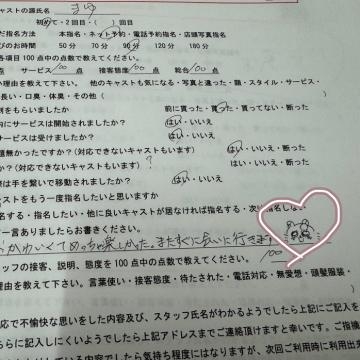 キャストの源氏名 まゆ
初めて・2回目・( )回目
だ指名方法 本指名・ネット予約・電話予約指名・店頭写真指名
びのお時間 50分 70分 90分 120分 180分
各項目100点中の点数で教えてください。
点 サービス/100点 接客態度/100点 総合/100点
い理由を教えて下さい。 他のキャストも気になる・写真と違った・顔・スタイル・サービス・
長い・口臭・体臭・その他(
割をもらいましたか 前に買った・買った・買ってない・断った
内にサービスは開始されましたか? はい・いいえ
サービスは受けましたか? はい・いいえ
題無かったですか?(対応できないキャストもいます) はい・いいえ・断った
か?(対応できないキャストもいます) ? はい・いいえ・断った
際は手を繋いで移動されましたか? はい・いいえ
ャストをもう一度指名したいと思いますか
名する・指名したい・他に良いキャストが居なければ指名する・次は指名しない
一言ありましたらお書きください。
かわいくてめっちゃ楽しかった。またすぐに会いに行きます
タッフの接客、説明、態度を100点中の点数で教えてください。 100
理由を教えて下さい。言葉使い・接客態度・待たされた・電話対応・無愛想・頭髪服装・
応で不愉快な思いをした内容及び、スタッフ氏名がわかるようでしたら上記にご記入を
らに記入しにくいようでしたら上記アドレスまでご連絡頂けますと幸いです。ご指摘
している内容でしたら気持ち程度にはなりますが、次回ご利用時に利用出